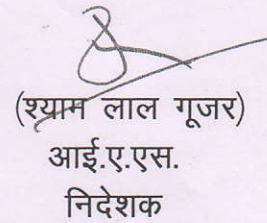 (श्याम लाल गूजर)
आई.ए.एस.
निदेशक